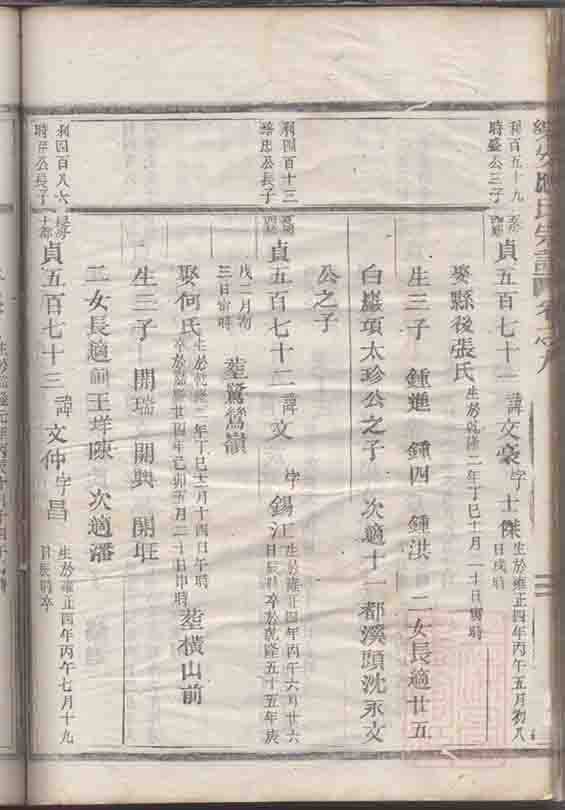 利百五十九
時盛公三子
貞五百七十一 諱文豪 字士傑 生於雍正四年丙午五月初八
日戌時
娶縣後張氏 生於乾隆二年丁巳十月二十日寅時
生三子 鍾進 鍾四 鍾洪 二女長適廿五
白巖項太珍公之子 次適十一都溪頭沈永文
公之子
利四百十三
公長子
貞五百七十二 諱文 字錫江 生於雍正四年丙午六月廿六
日辰時卒於乾隆五十五年庚
戌二月初
三日寅時
葬鷟鷟嶺
娶何氏 生於乾隆二年丁巳十二月十四日午時
卒於嘉慶廿四年己卯五月二十日申時
葬橫山前
生三子 開瑞 開興 開
二女長適 王垟陳 次適潘
利四百八六
時 公長子
貞五百七十三 諱文仲 字昌 生於雍正四年丙午七月十九
日辰時卒